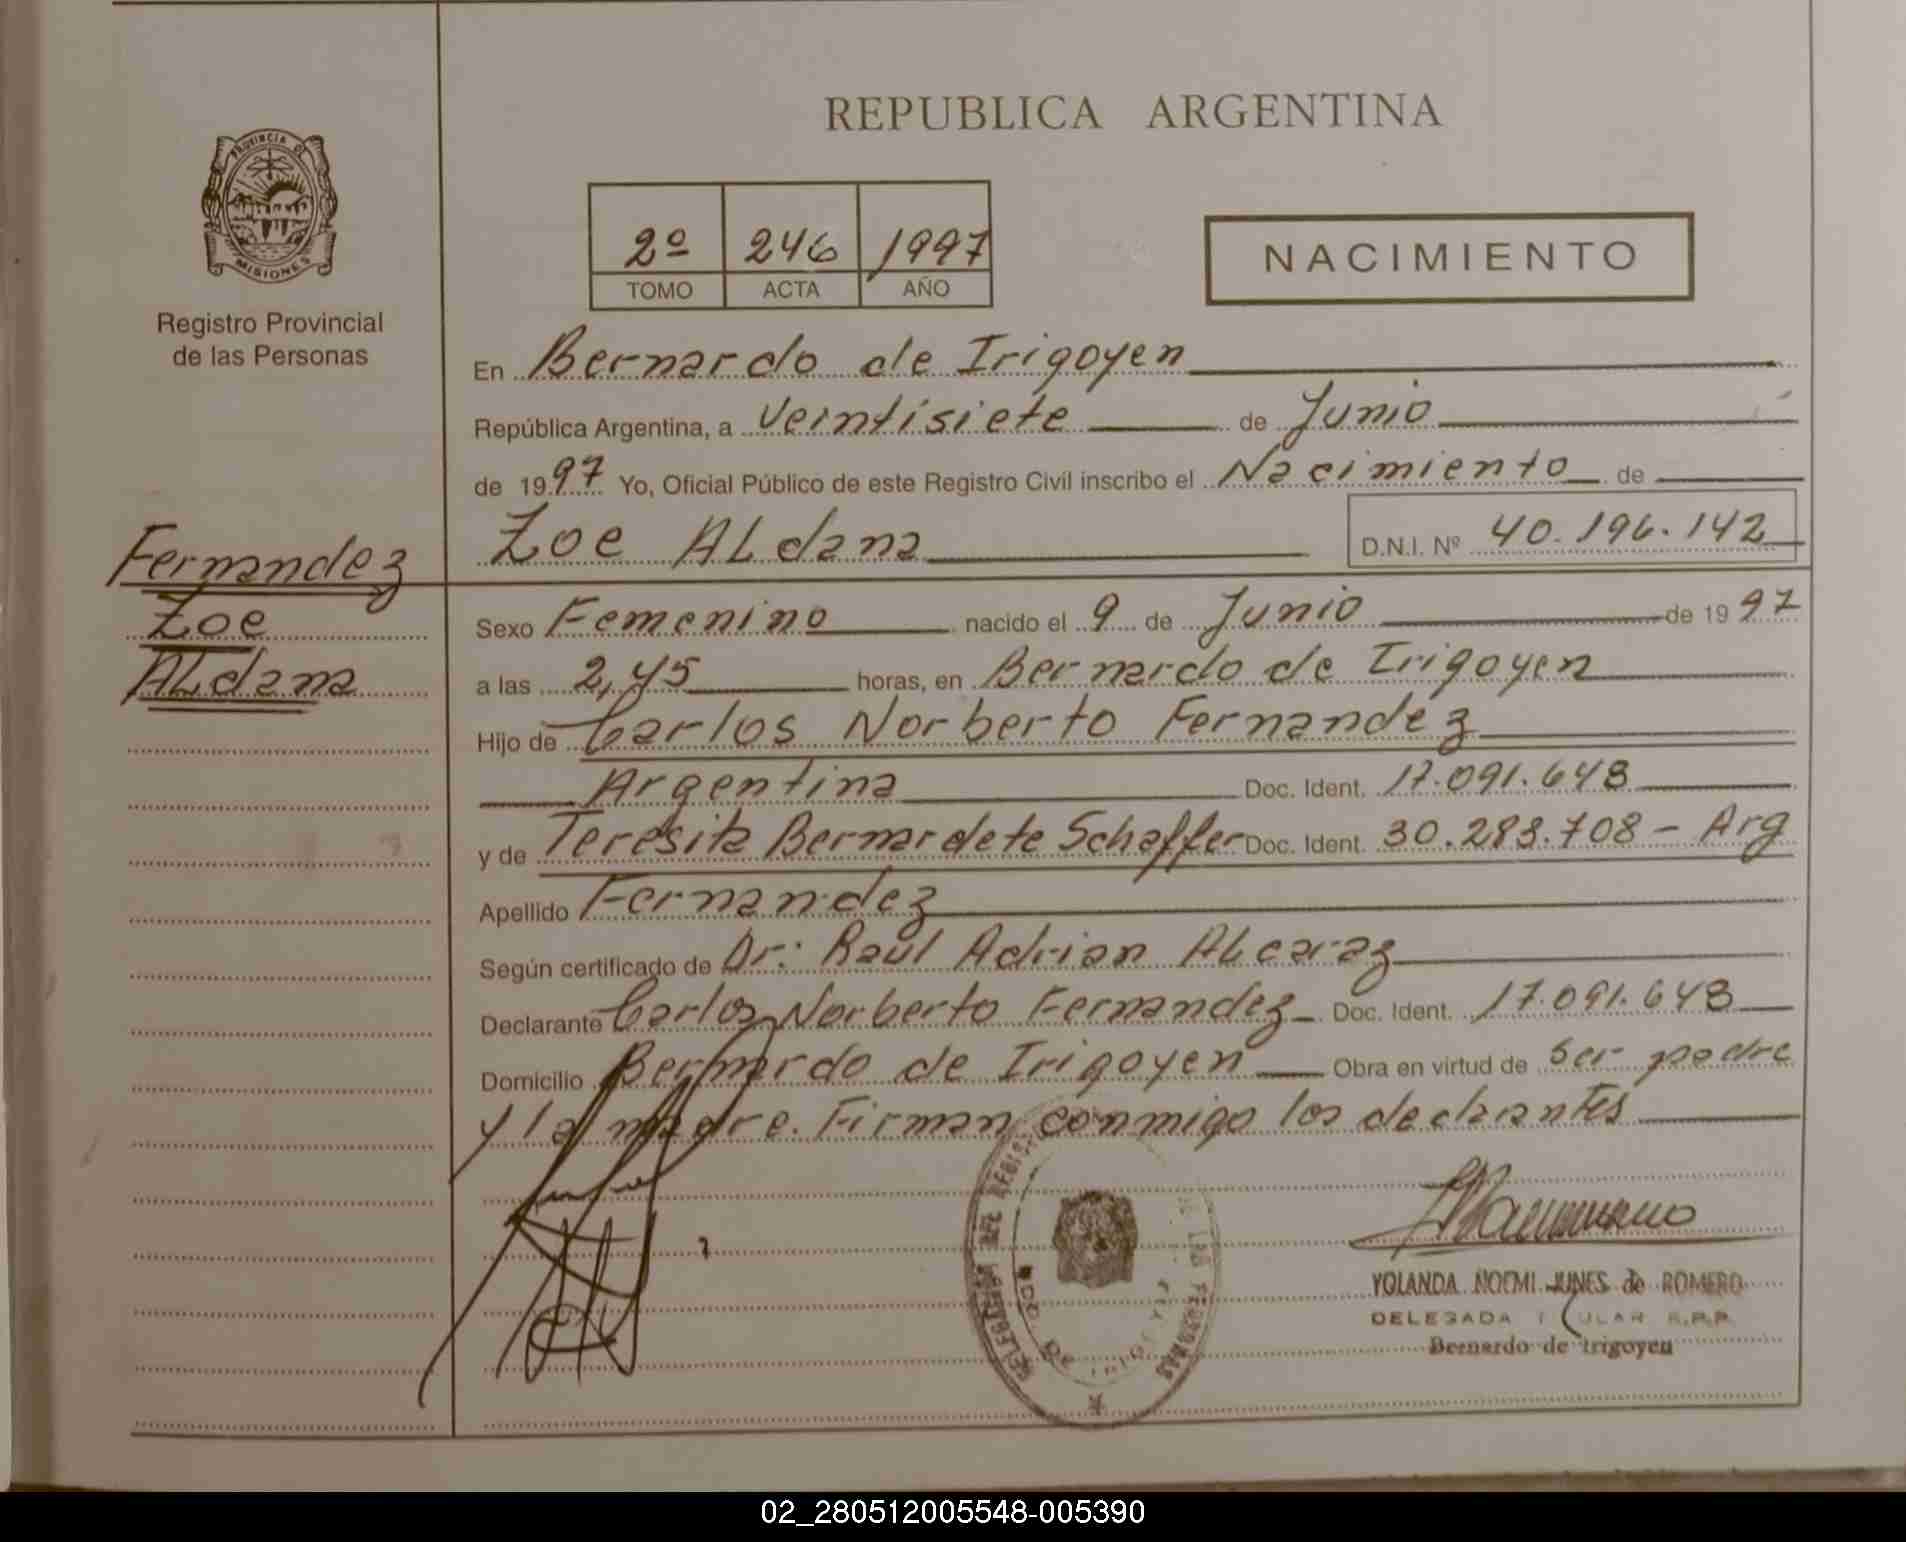 REPUBLICA ARGENTINA
PROVINCIA DE
MISIONES
Registro Provincial
de las Personas
2º 246 1997
TOMO ACTA AÑO
NACIMIENTO
En Bernardo de Irigoyen
República Argentina, a veintisiete de Junio
de 1997 Yo, Oficial Público de este Registro Civil inscribo el Nacimiento de
Zoe ALdana D.N.I. Nº 40.196.142
Fernandez
Zoe
ALdana
Sexo Femenino nacido el 9 de Junio de 1997
a las 2,45 horas, en Bernardo de Irigoyen
Hijo de Carlos Norberto Fernandez
Argentina Doc. Ident. 17.091.648
y de Teresita Bernardete Schaffer Doc. Ident. 30.283.708 - Arg
Apellido Fernandez
Según certificado de Dr: Raul Adrian ALcaraz
Declarante Carlos Norberto Fernandez Doc. Ident. 17.091.648
Domicilio Bernardo de Irigoyen Obra en virtud de ser padre
y la madre. Firman conmigo los
YOLANDA NOEMI JUNES de ROMERO
DELEGADA R.P.P.
Bernardo de Irigoyen
02_280512005548-005390